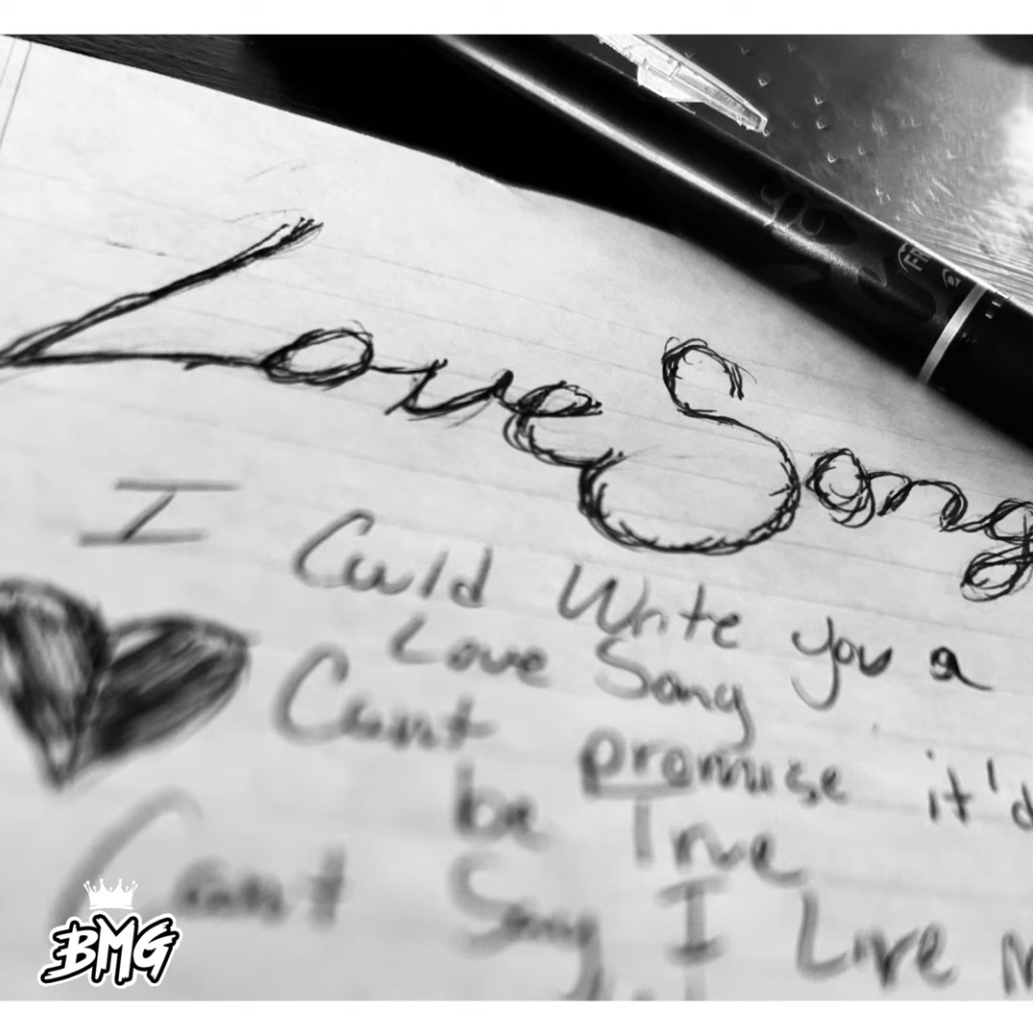 Love Song
I Could Write you a
Love Song
Can't promise it'd
be True
Can't Say I Live
BMG